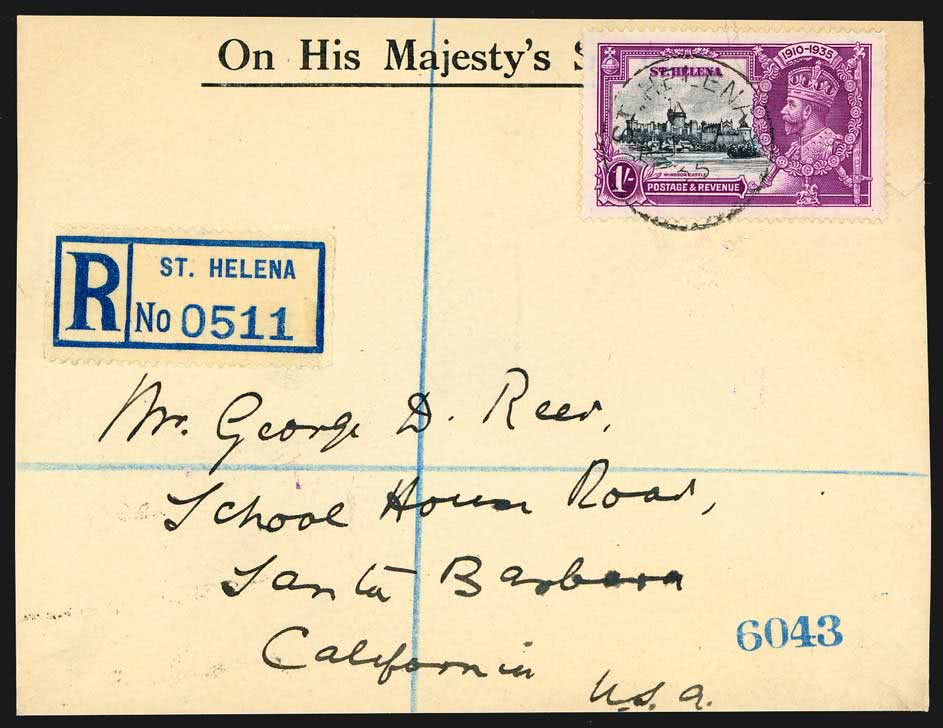 On His Majesty's S
1910-1935
ST. HELENA
ST. HELENA
WINDSOR CASTLE
1/-
POSTAGE & REVENUE
R
ST. HELENA
No 0511
Mr. George D. Reed,
School House Road,
Santa Barbara
California
U.S.A.
6043